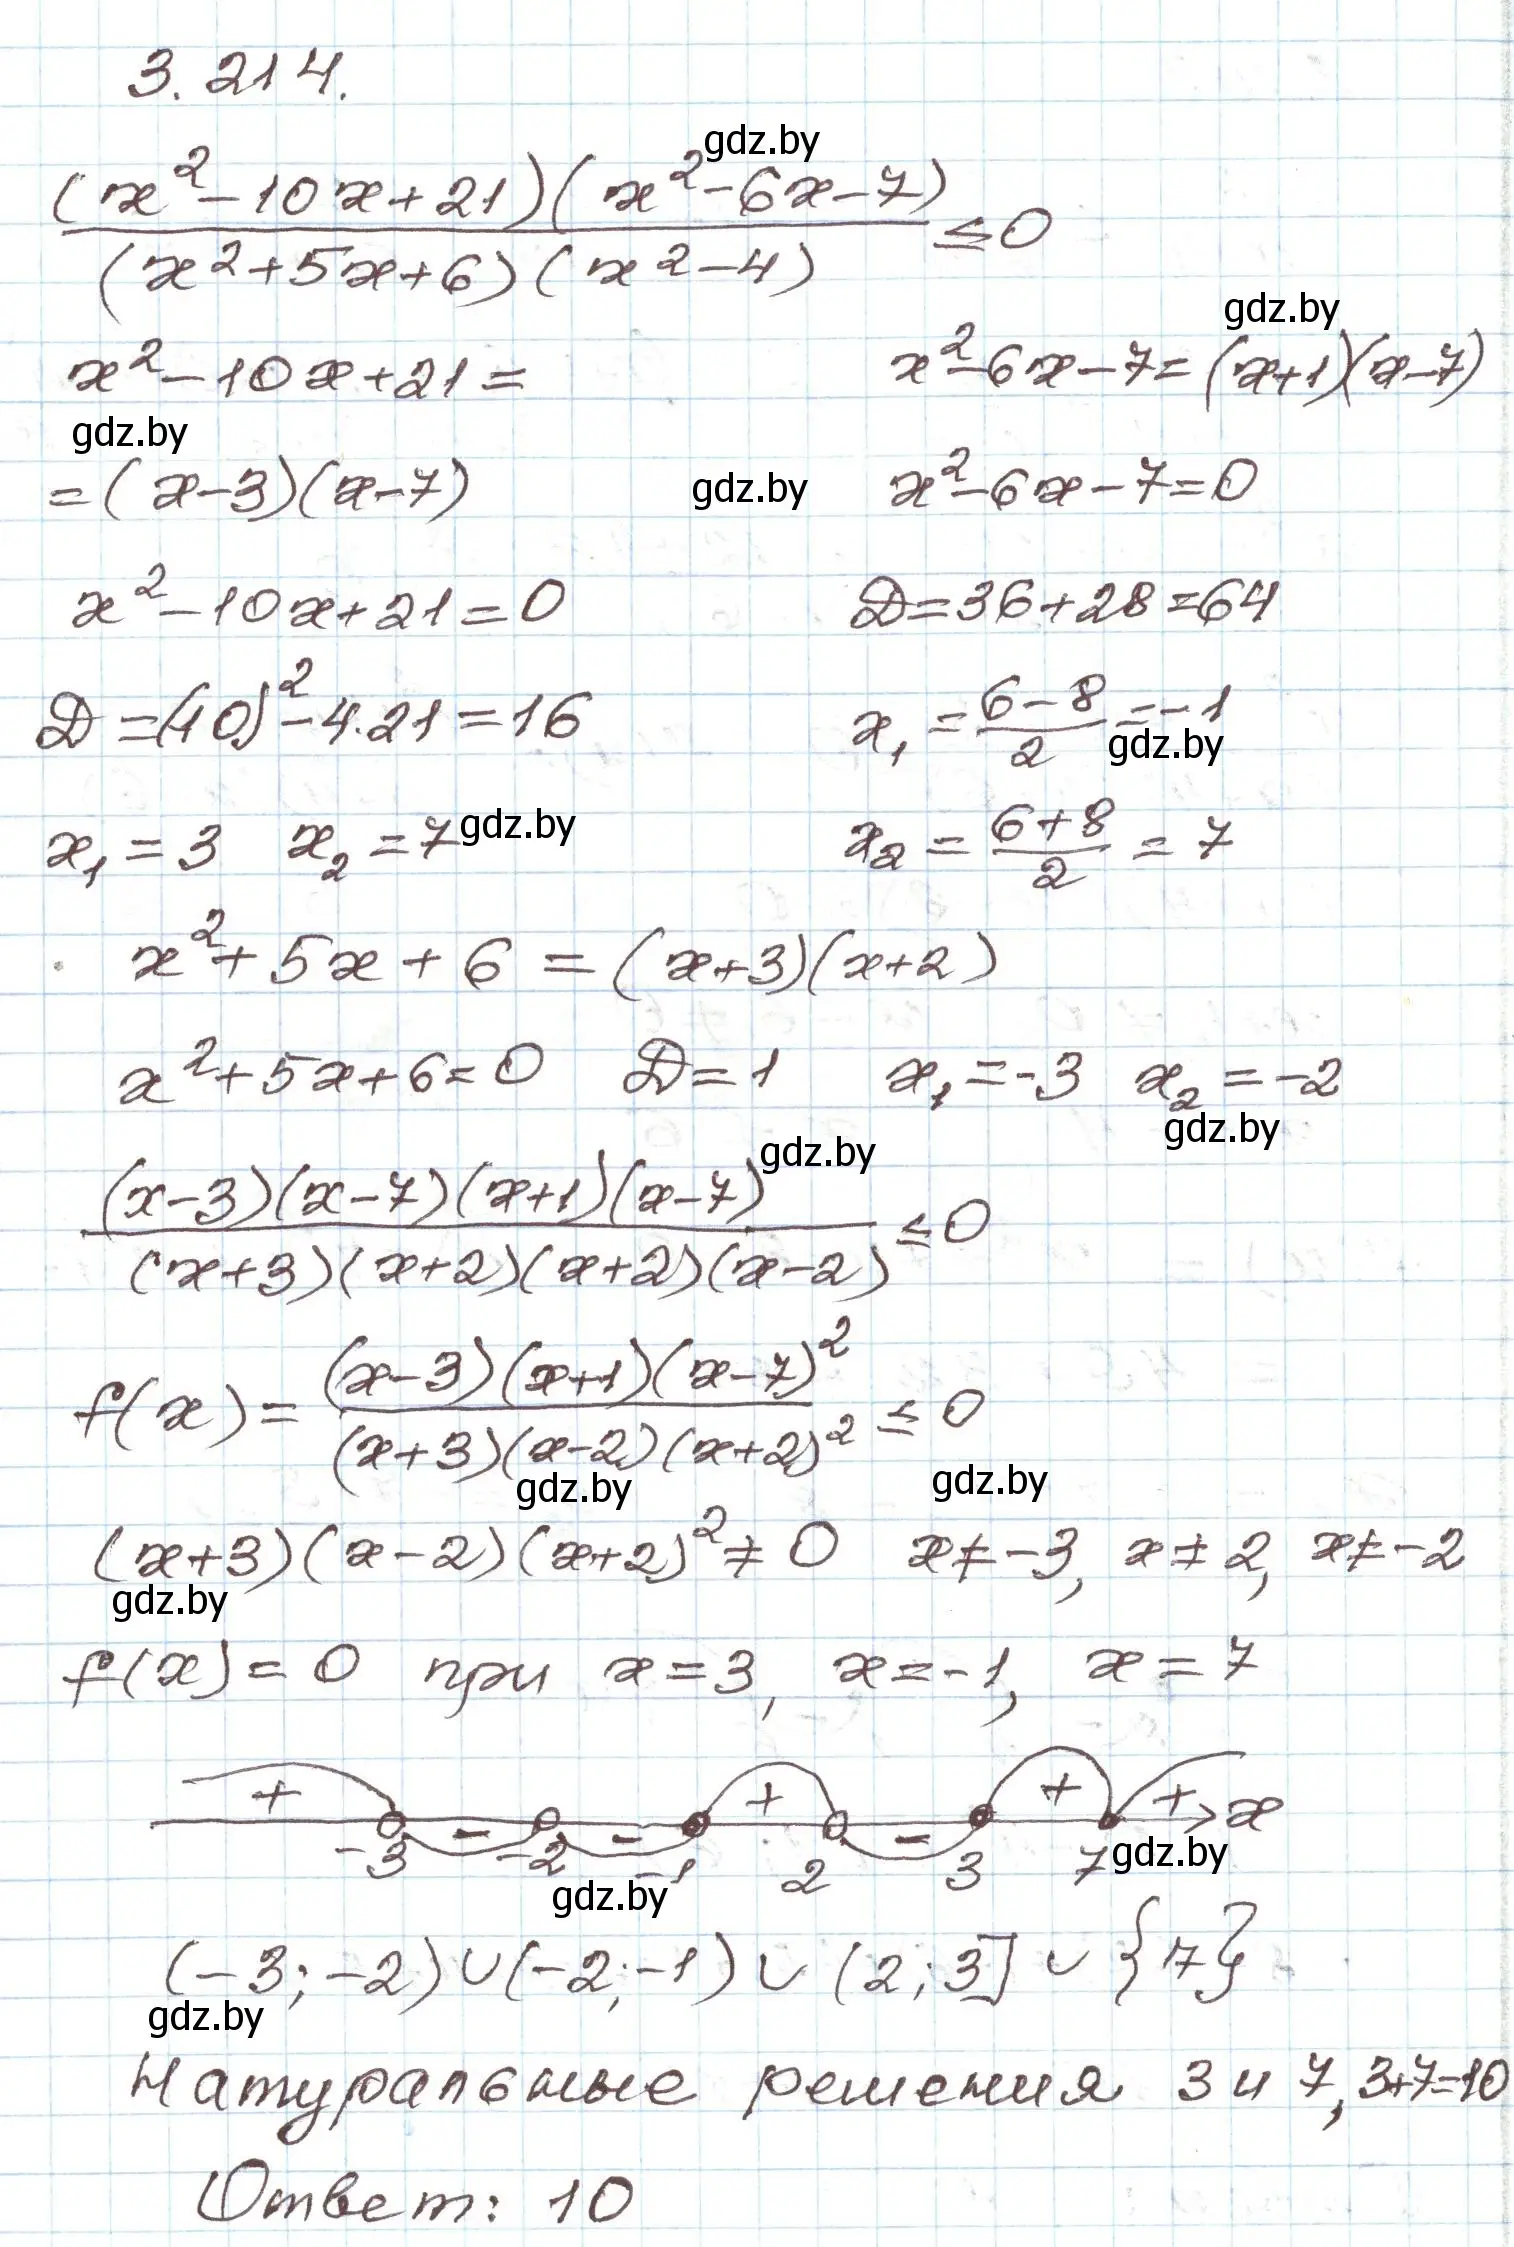 3.214.
gdz.by
(x²-10x+21)(x²-6x-7)
/(x²+5x+6)(x²-4) ≤0
gdz.by
x²-10x+21= x²-6x-7=(x+1)(x-7)
gdz.by
=(x-3)(x-7) gdz.by x²-6x-7=0
x²-10x+21=0 D=36+28=64
D=(-10)²-4·21=16 x₁=(6-8)/2=-1
gdz.by
x₁=3 x₂=7 gdz.by x₂=(6+8)/2=7
x²+5x+6=(x+3)(x+2)
x²+5x+6=0 D=1 x₁=-3 x₂=-2
gdz.by
gdz.by
(x-3)(x-7)(x+1)(x-7)
/(x+3)(x+2)(x+2)(x-2) ≤0
f(x)=(x-3)(x+1)(x-7)²
/(x+3)(x-2)(x+2)² ≤0
gdz.by gdz.by
(x+3)(x-2)(x+2)²≠0 x≠-3, x≠2, x≠-2
gdz.by
f(x)=0 при x=3, x=-1, x=7
+ - - + - + + x
-3 -2 -1 2 3 7 gdz.by
gdz.by
(-3;-2)∪(-2;-1)∪(2;3]∪{7}
gdz.by
Натуральные решения 3 и 7, 3+7=10
Ответ: 10